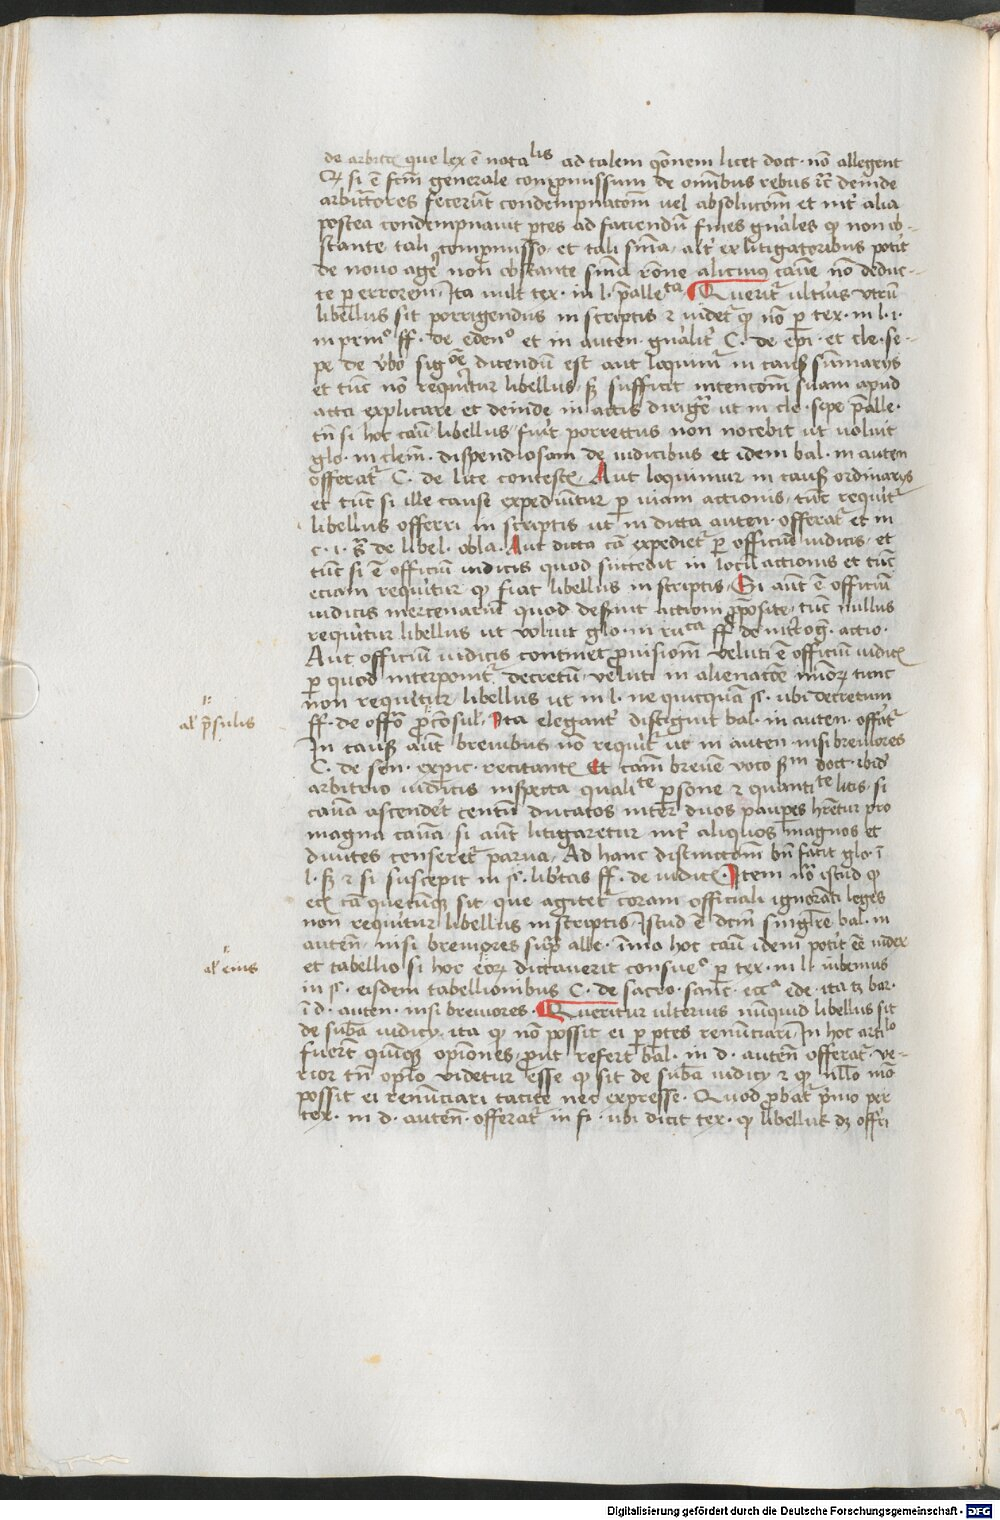 de arbitris que lex ē nota^lis ad talem q̄onem licet doct· nō allegent
Qꝫ si ē fcm̄ generale comꝓmissum de om̄ibus rebus ꝛcꝛ deinde
arbitratores fecerūt condempnacōm uel absolucōm et int̉ alia
postea condempnauit ꝑtes ad faciendū fines gn̄ales ꝙ non ob-
stante tali comꝓmisso et tali sn̄ia alt̉ ex litigatoribus potit̉
de nouo agẻ non obstante sn̄ia rōne alicuius cause nō deduc-
te ꝑ errorem· Ita uult tex· in l· p̄alle^ta· Querit̉ ulteriꝰ vtrū
libellus sit porrigendus in scriptis ⁊ uidet̉ ꝙ nō ꝑ tex· in l· i·
in prin^o ff· de eden^o et in auten· gn̄alit̉ C· de epi· et cle· se-
pe de v̉bo sig^oe dicendū est aut loquimur in causis sūmarijs
et tūc nō requirit̉ libellus sꝫ sufficit intencōm suam apud
acta explicare et deinde in actis dirigē ut in cle· sepe p̄alle·
tn̄ si hoc casu libellus fuit porrectus non nocebit ut uoluit
glo· in clem̄· dispendiosam de iudicibus et idem bal· in auten
offerat̉ C· de lite contest· Aut loquimur in causis ordinarijs
et tūc si ille cause expediūtur ꝑ uiam actionis tūc requirit̉
libellus offerri in scriptis ut in dicta auten· offerat̉ et in
c· i· ex̄ de libel· obla· Aut dicta cā expediet̉ ꝑ officiū iudicis et
tūc si ē officiū iudicis quod succedit in locū actionis et tūc
eciam requiritur ꝙ fiat libellus in scriptis· Si aūt ē officiū
iudicis mercenariū quod deseruit actioni ꝓposite tūc nullus
requiritur libellus ut voluit glo· in ru^ca ff· de int̉rog̉· actio·
Aut officiū iudicis continet ꝓuisionem veluti ē officiū iudicꝭ
ꝑ quod interponit̉ decretū veluti in alienacōe minoꝝ tunc
non requiritur libellus ut in l· ne quicquā §· ubi decretum
ff· de offō ꝓcōsul· Ita elegant̉ distīguit bal· in auten· offerat̉
In causis aūt breuibus nō requirit̉ ut in auten· nisi breuiores
C· de sen· ex pic· recitantꝭ Et cām breuē voco s^m doct· ibid̉
arbitrio iudicis inspecta quali^te ꝑsone ⁊ quanti^te litis· si
causa ascenderet centū ducatos inter duos pauꝑes hr̄etur pro
magna causa si aūt litigaretur int̉ aliquos magnos et
diuites censeret̉ parua· Ad hanc distinctiom̄ bn̄ facit glo· ī
l· sꝫ ⁊ si suscepit in §· lib̉tas ff· de iudicꝭ· Item n̄o istud ꝙ
ecī cā quecūqꝫ sit que agitet̉ coram officiali ignorāti leges
non requiritur libellus in scriptis· Istud ē dc̄m singl̄re bal· in
auten̄· nisi breuiores sup̄ alle· īmo hoc casu idem potit ēē iudex
et tabellio si hoc eoꝝ dictauerit consue^o ꝑ tex· in l· iubemus
in §· eisdem tabellionibus C· de sacro· sanc· ecc^a ede· ita tꝫ bar·
ī d· auten· nisi breuiores· Queritur ulterius nūnquid libellus sit
de sub̄a iudicij ita ꝙ nō possit ei ꝑ ꝑtes renūnciari· In hoc arti^lo
fuerūt quīqꝫ opiōnes ꝓut refert bal· in d· auten̄ offerat̉· ve-
rior tn̄ opīo videtur esse ꝙ sit de sub̄a iudicij ⁊ ꝙ nullō mō
possit ei renūnciari tacite nec expresse· Quod ꝓbat̉ primo per
tex· in d· auten̄· offerat̉ in fi· ubi dicit tex· ꝙ libellus dꝫ offeri
al̉ p̄sulis
al̉ eius
Digitalisierung gefördert durch die Deutsche Forschungsgemeinschaft - DFG